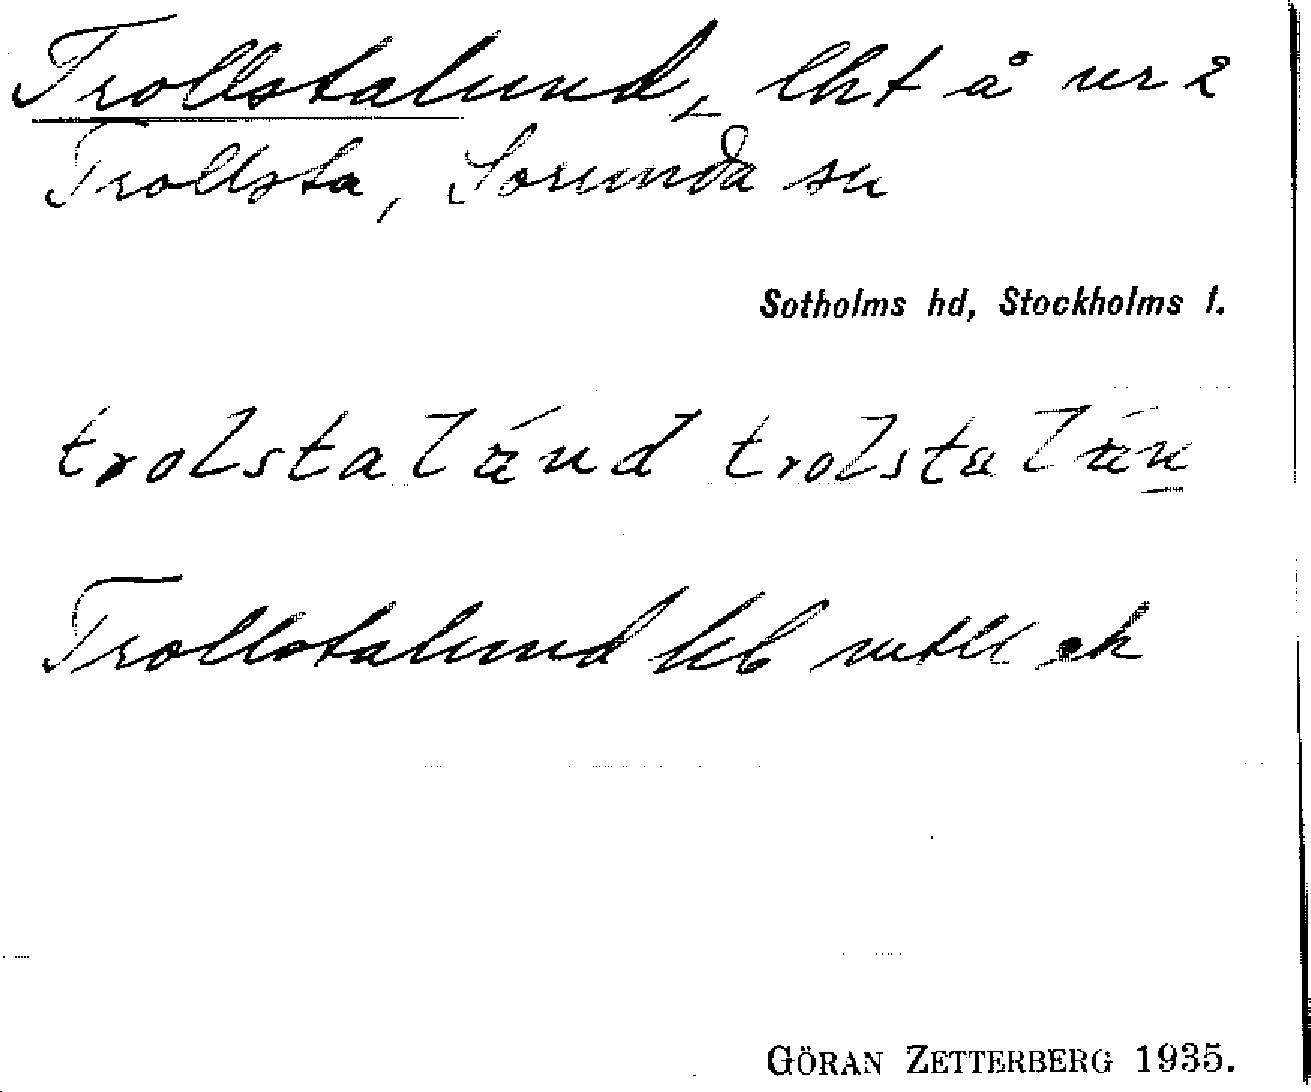 Trollstalund, lht å nr 2
Trollsta, Sorunda sn
Sotholms hd, Stockholms l.
trolstalánd trolstalán
Trollstalund kb mtll ek
GÖRAN ZETTERBERG 1935.